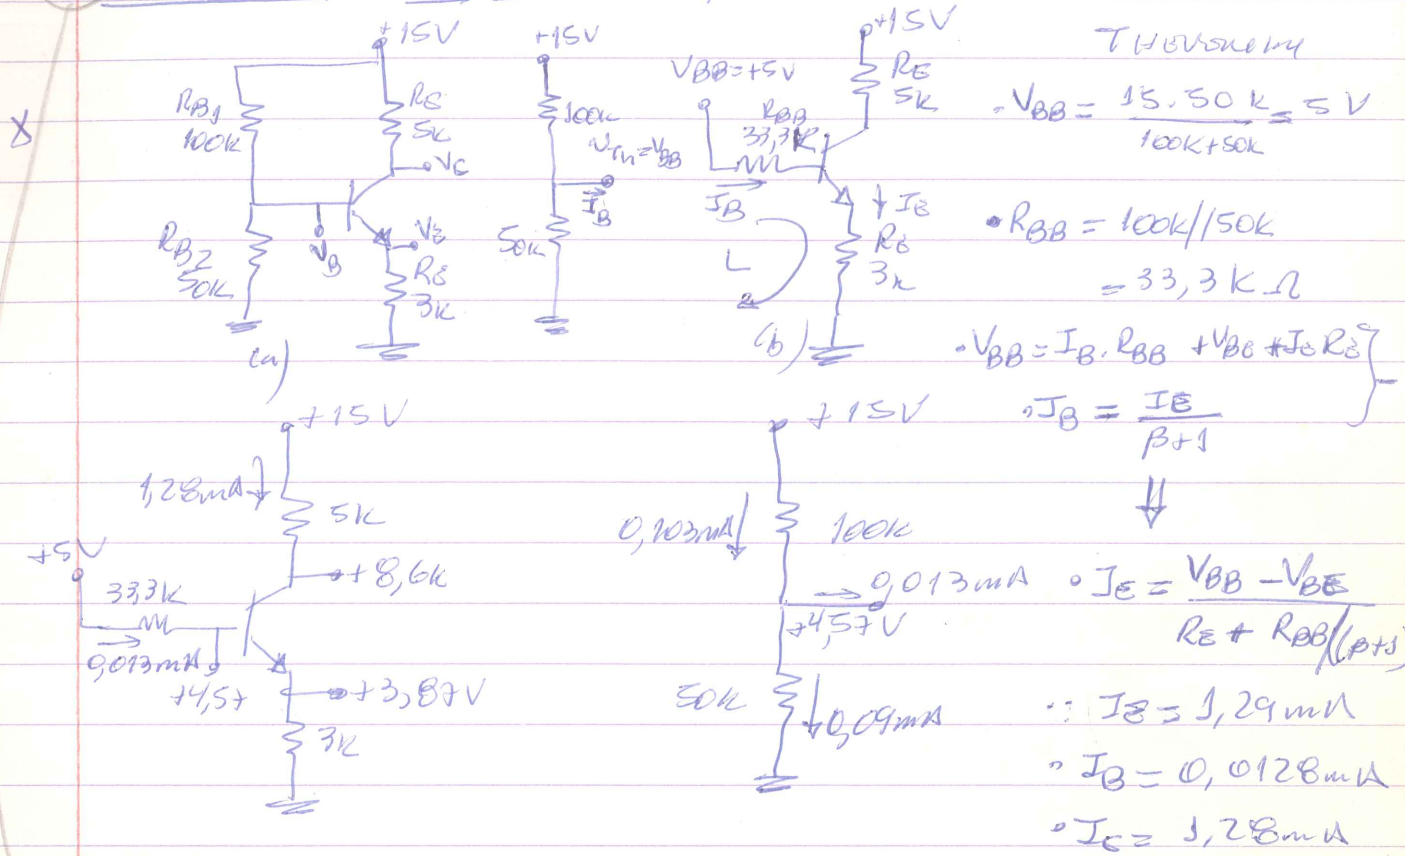 +15V
R_B1
100k
RE
5k
VC
VB
VE
R_B2
50k
RE
3k
(a)
+15V
100k
VTh=VBB
IB
50k
VBB=+5V
RBB
33,3k
IB
L
+15V
RE
5k
IE
RE
3k
(b)
• VBB = 15.50k / 100k+50k = 5V
• RBB = 100k//50k
= 33,3kΩ
• VBB = IB.RBB + VBE + IE RE
• IB = IE / β+1
⇓
• IE = VBB - VBE / RE + RBB/(β+1)
∴ IE = 1,29mA
• IB = 0,0128mA
• IC = 1,28mA
+15V
1,28mA
5k
+8,6k
+5V
33,3k
0,013mA
+4,57
+3,87V
3k
+15V
0,103mA
100k
0,013mA
+4,57V
50k
0,09mA